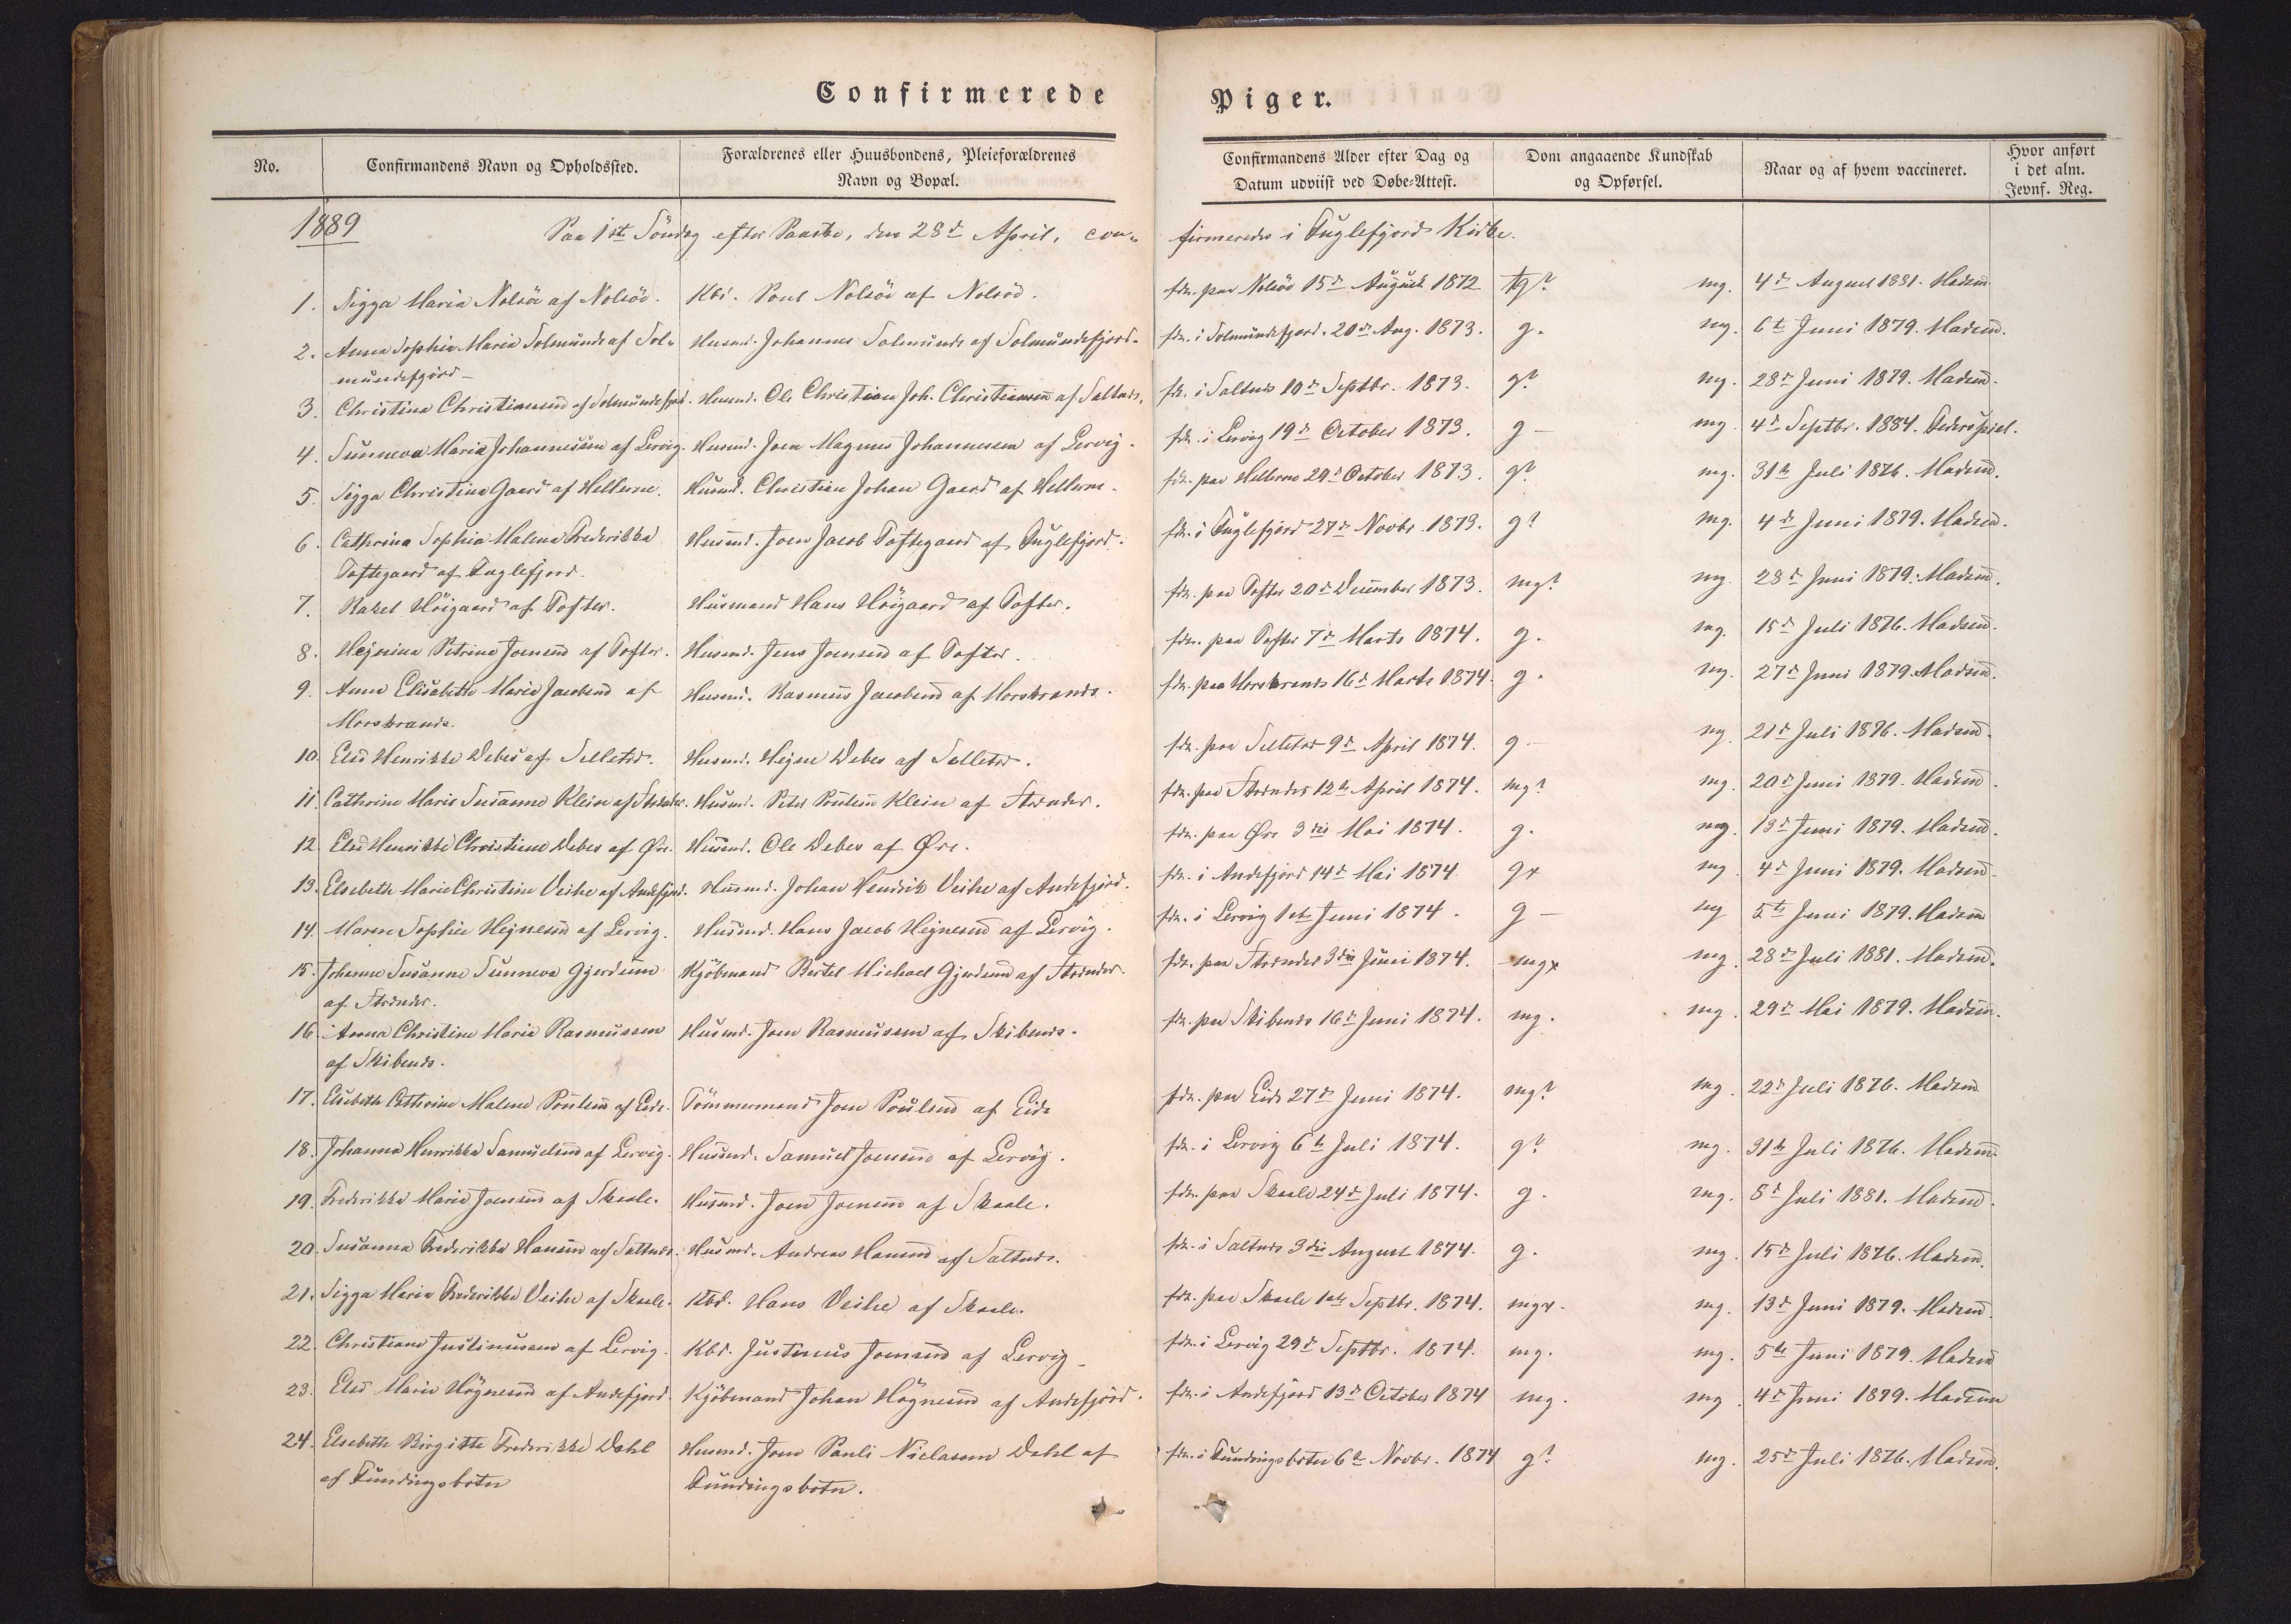 Confirmerede Piger.
No. Confirmandens Navn og Opholdssted. Forældrenes eller Huusbondens, Pleieforældrenes Navn og Bopæl. Confirmandens Alder efter Dag og Datum udviist ved Døbe-Attest. Dom angaaende Kundskab og Opførsel. Naar og af hvem vaccineret. Hvor anført i det alm. Jevnf. Reg.
1889 Paa 1ste Söndag efter Paaske, den 28d April, con- firmeredes i Fuglefjord Kirke.
1. Sigga Maria Nolsöe af Nolsöe. Kbd. Poul Nolsöe af Nolsöe. fdn. paa Nolsöe 15d August 1872 tg? mg. 4d August 1881. Madsen
2. Anna Sophie Maria Solmunde af Sol- Husmd. Johannes Solmunde af Solmundefjord. fdn. i Solmundefjord. 20de Aug. 1873. g. mg. 6te Juni 1879. Madsen.
mundefjörd
3. Christina Christiansen af Solmundefjord. Husmd. Ole Christian Joh. Christiansen af Saltnes. fdn. i Saltnes 10d Septbr. 1873. g? mg. 28d Juni 1879. Madsen.
4. Sunneva Maria Johannessen af Lervig. Husmd. Joen Magnus Johannessen af Lervig. fdn. i Lervig 19d October 1873. g - mg. 4d Septbr. 1884. Federspiel.
5. Sigga Christina Gaard af Hellerne. Husmd. Christian Johan Gaard af Hellerne. fdn. paa Hellerne 29d October 1873. g? mg. 31te Juli 1876. Madsen.
6. Cathrina Sophia Malena Frederikka Husmd. Joen Jacob Toftegaard af Fuglefjord. fdn. i Fuglefjord 27d Novbr. 1873. g? mg. 4de Juni 1879. Madsen.
Toftegaard af Fuglefjord.
7. Rakel Höigaard af Tofter. Husmand Hans Höigaard af Tofter. fdn. paa Tofter 20d December 1873. mg? mg. 28d Juni 1879. Madsen.
8. Hejnina Petrine Joensen af Tofter. Husmd. Jens Joensen af Tofter. fdn. paa Tofter 7d Marts 1874. g. mg. 15d Juli 1876. Madsen.
9. Anna Elisabeth Maria Jacobsen af Husmd. Rasmus Jacobsen af Morskranes. fdn. paa Morskranes 16d Marts 1874. g. mg. 27d Juni 1879. Madsen.
Morskranes.
10. Else Henrikke Debes af Selleter. Husmd. Hejne Debes af Selleter. fdn. paa Selleter 9d April 1874. g - mg. 21d Juli 1876. Madsen.
11. Cathrine Marie Susanne Klein af Strender. Husmd. Peter Poulsen Klein af Strender. fdn. paa Strender 12te April 1874. mg? mg. 20d Juni 1879. Madsen.
12. Else Henrikke Christiane Debes af Øre. Husmd. Ole Debes af Øre. fdn. paa Øre 3die Mai 1874. g. mg. 13d Juni 1879. Madsen.
13. Elsebeth Marie Christine Veihe af Andefjord. Husmd. Johan Hendrik Veihe af Andefjord. fdn. i Andefjord 14d Mai 1874. gx mg. 4d Juni 1879. Madsen.
14. Maren Sophie Hejnesen af Lervig. Husmd. Hans Jacob Hejnesen af Lervig. fdn. i Lervig 1ste Juni 1874. g - mg 5te Juni 1879. Madsen
15. Johanne Susanne Sunneva Gjerdum Kjöbmand Bertel Michael Gjerdum af Strender. fdn. paa Strender 3die Juni 1874. mgx mg. 28d Juli 1881. Madsen.
af Strender.
16. Anna Christine Marie Rasmussen Husmd. Joen Rasmussen af Skibenes. fdn. paa Skibenes 16d Juni 1874. mg. mg. 29d Mai 1879. Madsen.
af Skibenes.
17. Elsebeth Cathrine Malene Poulsen af Eide. Tömmermand Joen Poulsen af Eide fdn. paa Eide 27d Juni 1874. mg? mg. 22d Juli 1876. Madsen
18. Johanne Henrikka Samuelsen af Lervig. Husmd. Samuel Joensen af Lervig. fdn. i Lervig 6te Juli 1874. g? mg. 31te Juli 1876. Madsen.
19. Frederikke Marie Joensen af Skaale. Husmd. Joen Joensen af Skaale. fdn. paa Skaale 24d Juli 1874. g. mg. 8d Juli 1881. Madsen.
20. Susanna Frederikke Hansen af Saltnes. Husmd. Andreas Hansen af Saltnes. fdn. i Saltnes 3die August 1874. g. mg. 15d Juli 1876. Madsen.
21. Sigga Maria Frederikke Veihe af Skaale. Kbd. Hans Veihe af Skaale. fdn. paa Skaale 1ste Septbr. 1874. mgx. mg. 13d Juni 1879. Madsen.
22. Christiane Justinussen af Lervig. Kbd. Justinus Joensen af Lervig. fdn. i Lervig 29d Septbr. 1874. mg. mg. 5te Juni 1879. Madsen
23. Else Marie Högnesen af Andefjord. Kjöbmand Johan Högnesen af Andefjord. fdn. i Andefjord 13d October 1874 mg. mg. 4d Juni 1879. Madsen
24. Elsebeth Birgitte Frederikke Dahl Husmd. Joen Pauli Niclasen Dahl af fdn. i Fundingsboten 6te Novbr. 1874 g? mg. 25d Juli 1876. Madsen.
af Fundingsboten Fundingsboten.